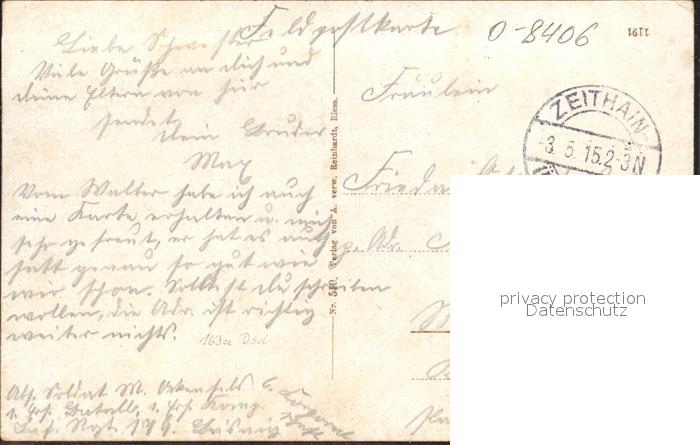 Feldpostkarte
O-8406
1191
Liebe Schwester
Viele Grüße an dich und
deine Eltern von hier
sendet
Dein Bruder
Max
Vom Walter habe ich auch
eine Karte erhalten u. mich
sehr gefreut, er hat es auch
satt genau so gut wie
wir schon. Solltest du schreiben
wollen, die Adr. ist richtig
weiter nichts.
163a Dsd
Abs. Soldat M.
1. Ers. Batall. 1. Ers. Komp.
Inf. Regt. 179.
Nr. 519. Verlag von A. verw. Reinhardt, Riesa.
Fräulein
Frieda
p. Adr.
ZEITHAIN
-3.5.15.2-3N
privacy protection
Datenschutz